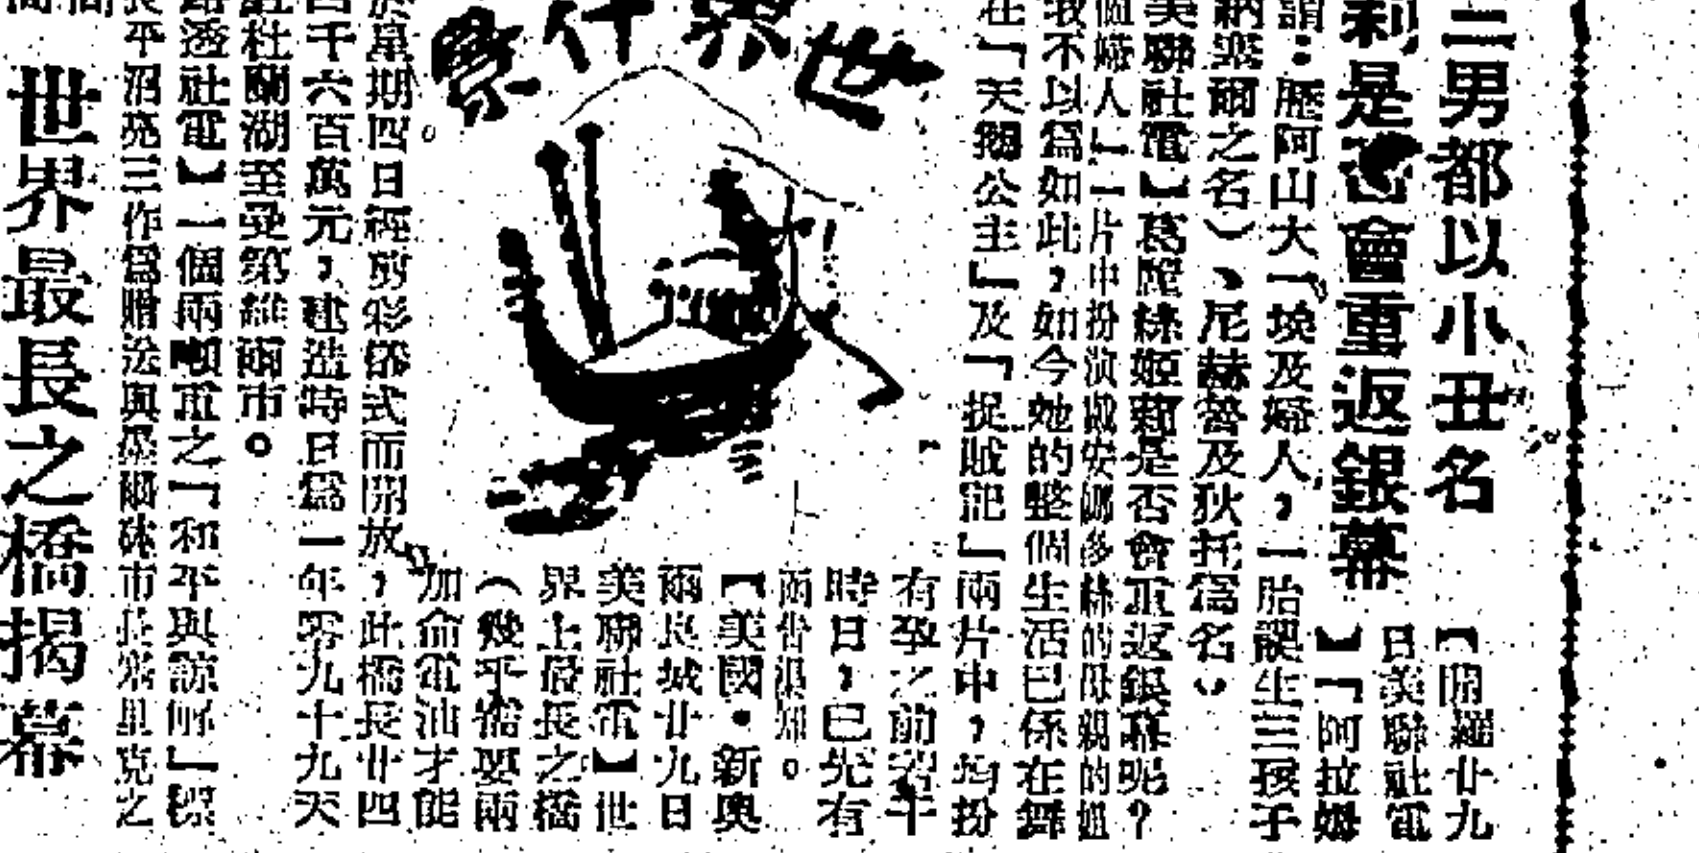 三男都以小丑名
【開羅廿九
日美聯社電
】「阿拉姆
謂:歷阿山大「埃及婦人,一胎誕生三孩子
納塞爾之名)、尼赫魯及狄托爲名。
利是否會重返銀幕
美聯社電】葛麗絲姬莉是否會重返銀幕呢?
個婦人」一片中扮演 的母親的姐
我不以爲如此,如今她的整個生活已係在舞
在「天鵝公主」及「捉賊記」兩片中,均扮
有孕之前若干
時日,已先有
世界什景
【美國•新奧
爾良城廿九日
美聯社電】世
界上最長之橋
(幾乎需要兩
加侖電油才能
於星期四日經剪彩儀式而開放,此橋長廿四
四千六百萬元,建造時日爲一年零九十九天
杜蘭湖至曼第維爾市。
世界最長之橋揭幕
路透社電】一個兩噸重之「和平與諒解」標
長平沼亮三作爲贈送與墨爾砵市長 里克之